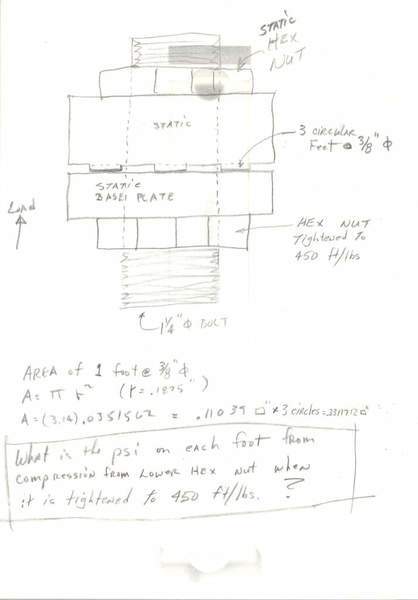 STATIC
HEX
NUT
STATIC
3 circular
Feet @ 3/8" Φ
STATIC
BASE PLATE
Load
HEX NUT
Tightened to
450 ft/lbs
1 1/4" Φ BOLT
AREA of 1 foot @ 3/8" Φ
A = π r² (r = .1875")
A = (3.14) .0351562 = .11039 □" x 3 circles = .3311712 □"
What is the psi on each foot from
compression from Lower Hex nut when
it is tightened to 450 ft/lbs. ?